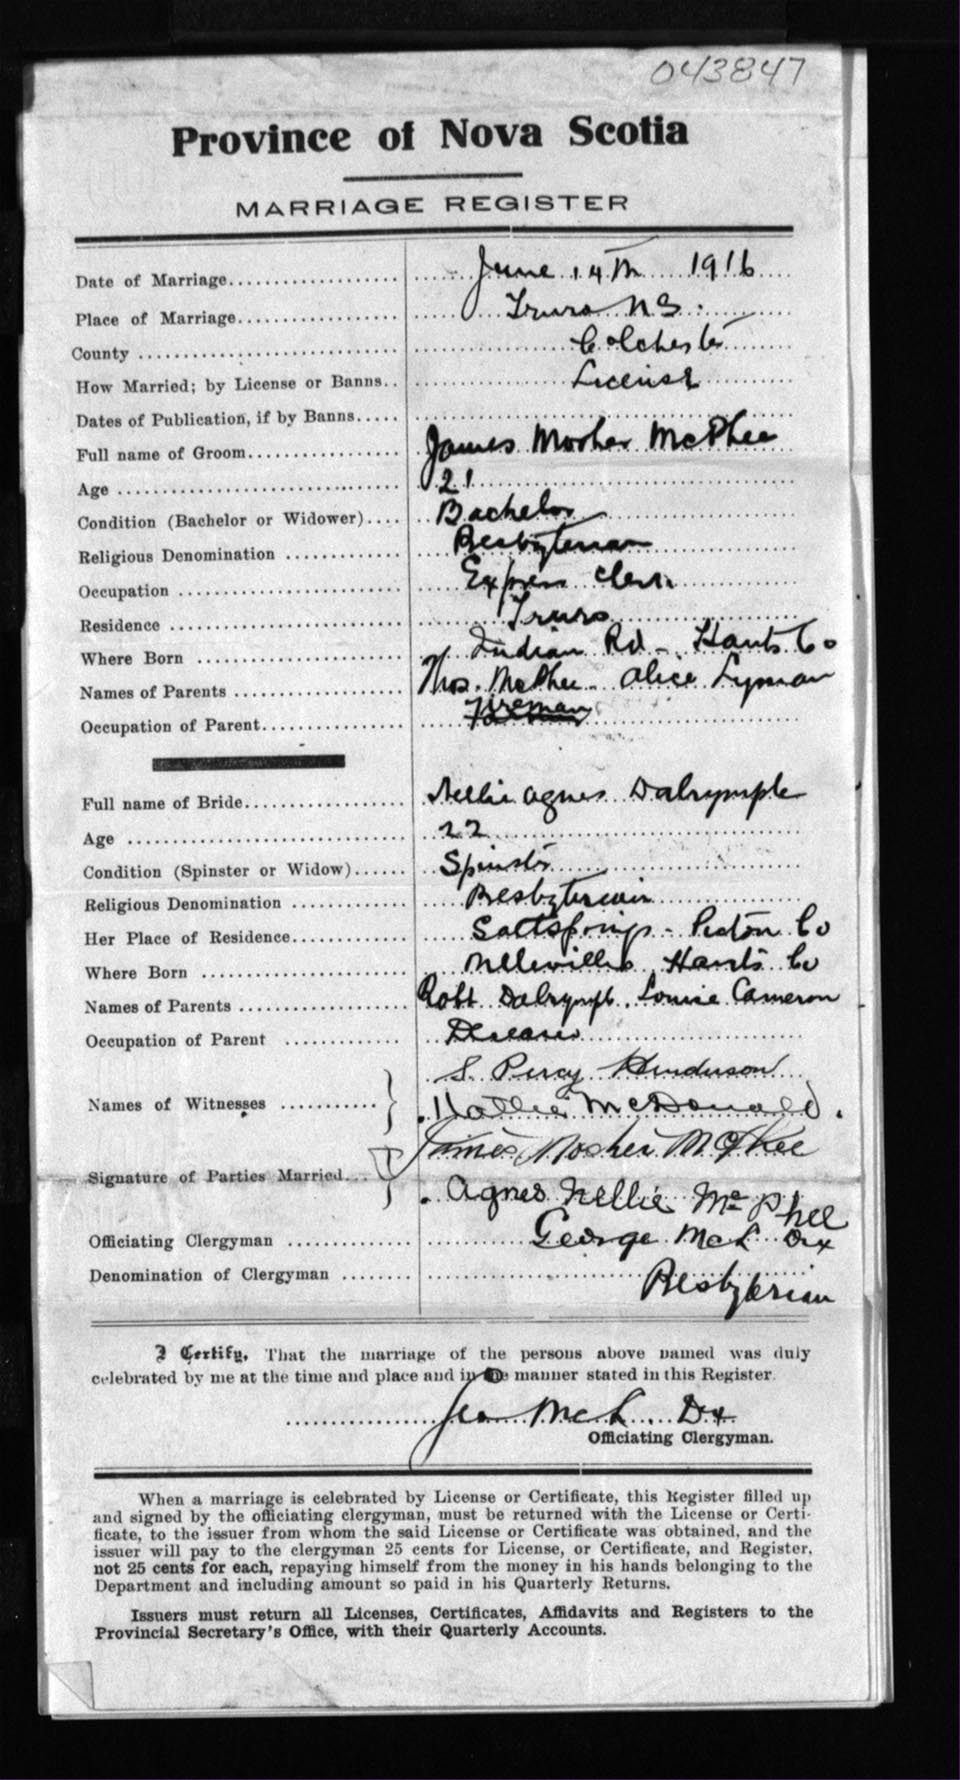 043847
Province of Nova Scotia
MARRIAGE REGISTER
Date of Marriage June 14th 1916
Place of Marriage Truro N.S.
County Colchester
How Married; by License or Banns License
Dates of Publication, if by Banns
Full name of Groom James Mosher McPhee
Age 21
Condition (Bachelor or Widower) Bachelor
Religious Denomination Presbyterian
Occupation Express Clerk
Residence Truro
Where Born Indian Rd - Hants Co
Names of Parents Thos. McPhee - Alice Lyman
Occupation of Parent Fireman
Full name of Bride Nellie Agnes Dalrymple
Age 22
Condition (Spinster or Widow) Spinster
Religious Denomination Presbyterian
Her Place of Residence Saltsprings - Pictou Co
Where Born Hants Co
Names of Parents Robt Dalrymple, Louise Cameron
Occupation of Parent
Names of Witnesses S. Percy Henderson
Hattie McDonald.
Signature of Parties Married James Mosher McPhee
Agnes Nellie McPhee
Officiating Clergyman George McL
Denomination of Clergyman Presbyterian
I Certify, That the marriage of the persons above named was duly
celebrated by me at the time and place and in the manner stated in this Register.
Geo McL.
Officiating Clergyman.
When a marriage is celebrated by License or Certificate, this Register filled up
and signed by the officiating clergyman, must be returned with the License or Certi-
ficate, to the issuer from whom the said License or Certificate was obtained, and the
issuer will pay to the clergyman 25 cents for License, or Certificate, and Register,
not 25 cents for each, repaying himself from the money in his hands belonging to the
Department and including amount so paid in his Quarterly Returns.
Issuers must return all Licenses, Certificates, Affidavits and Registers to the
Provincial Secretary's Office, with their Quarterly Accounts.